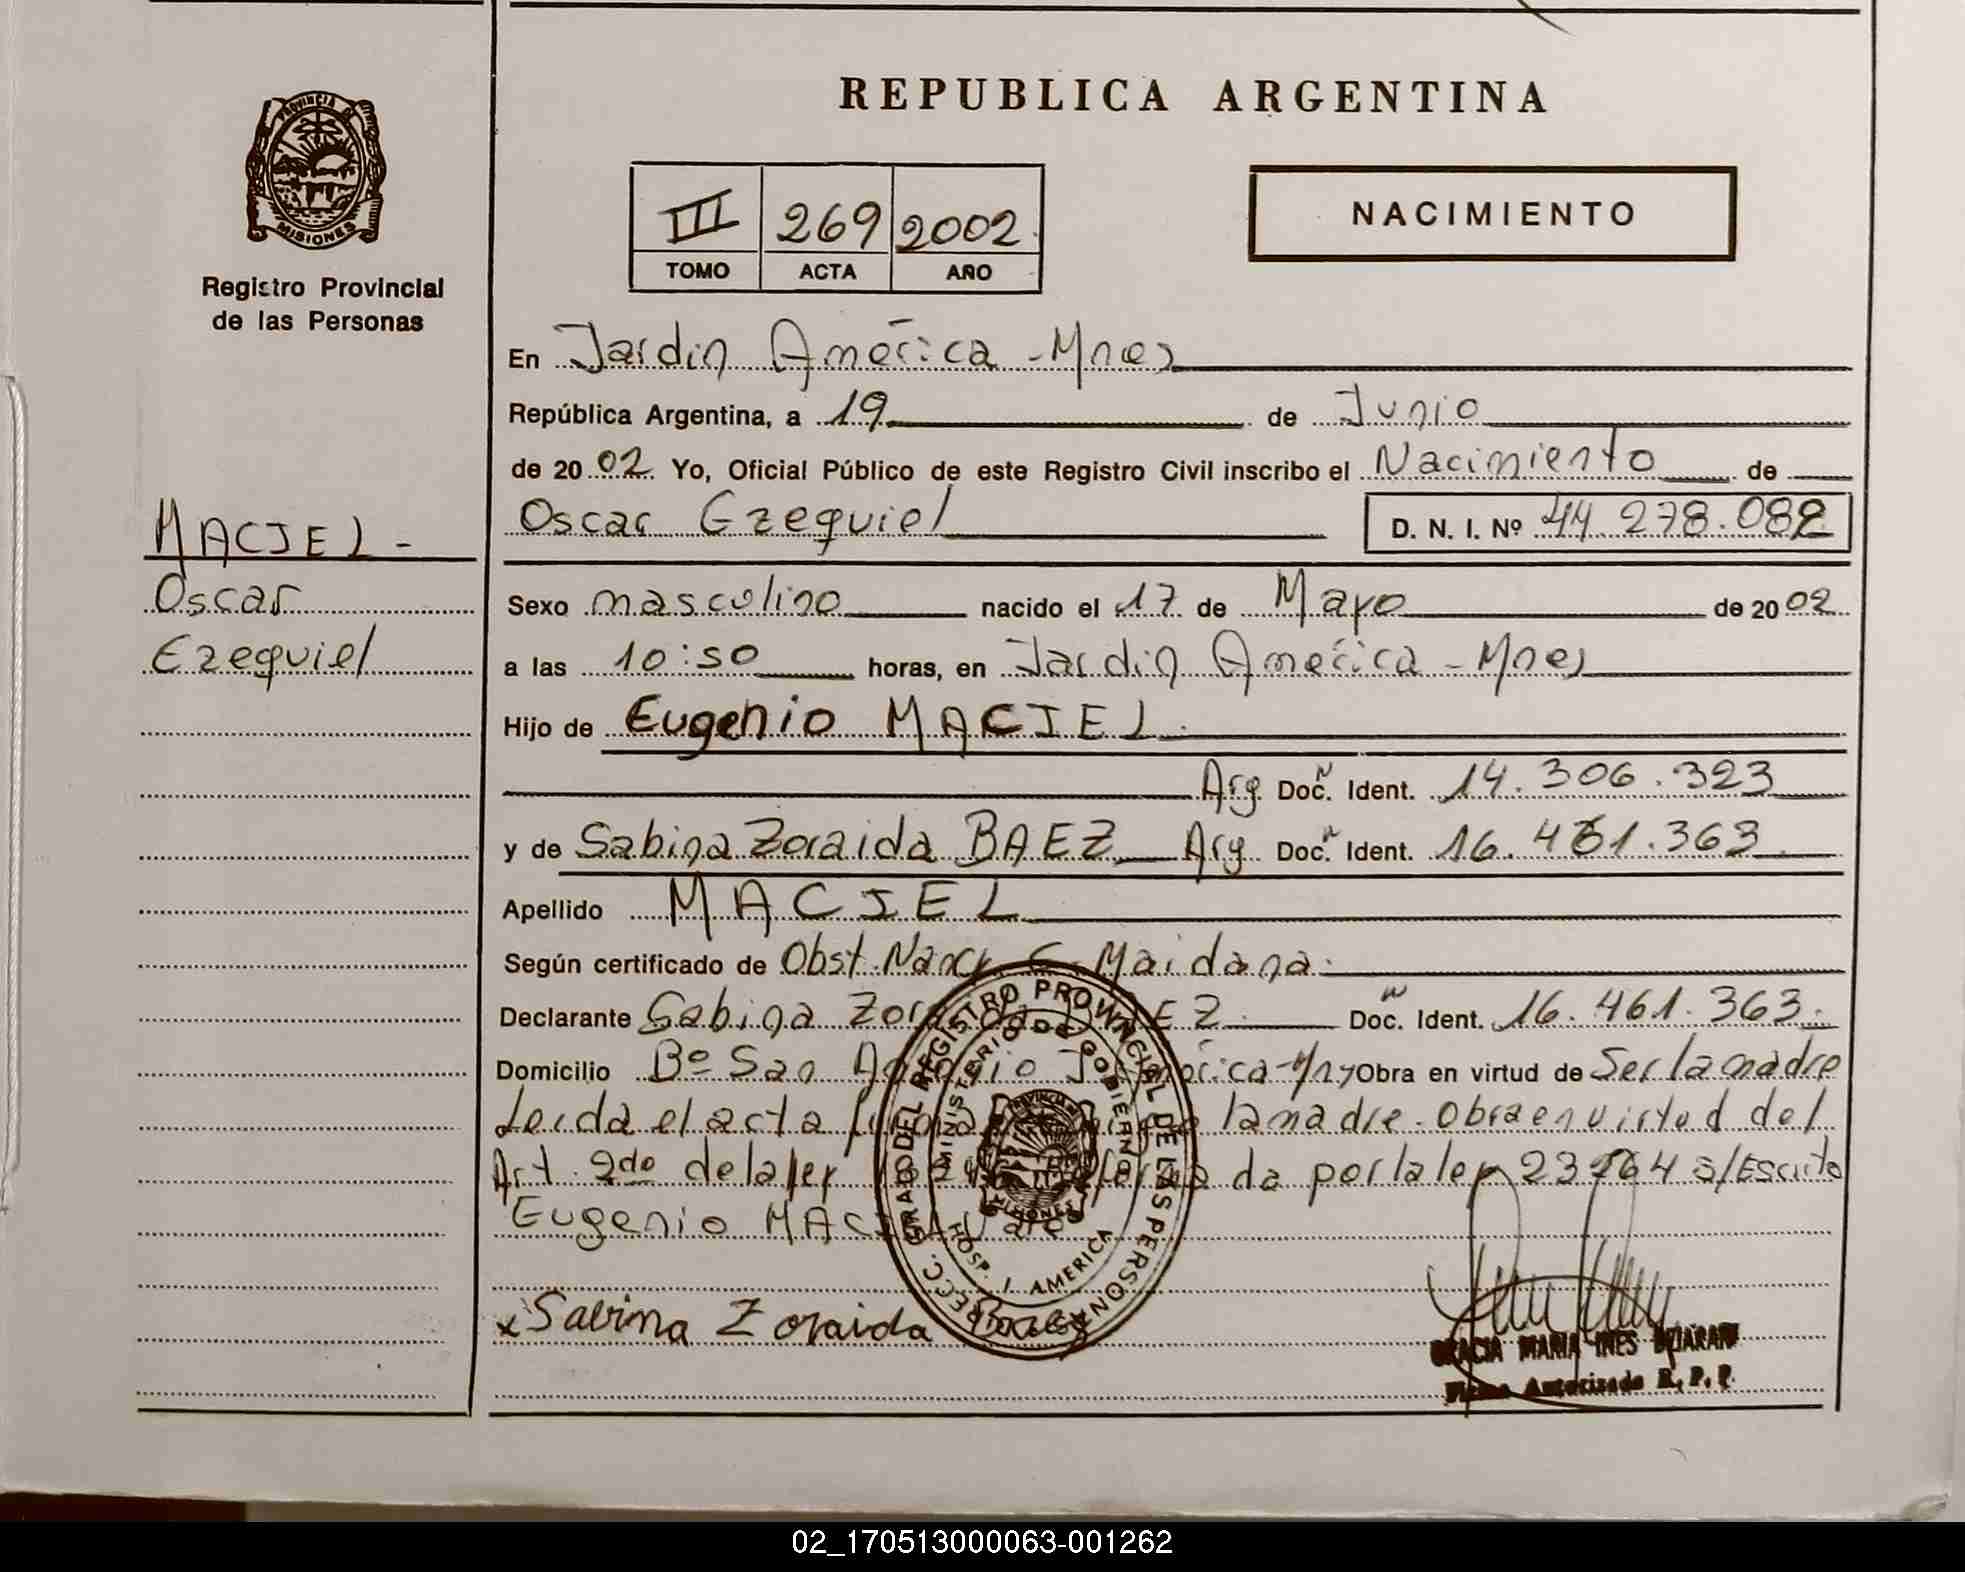 REPUBLICA ARGENTINA
PROVINCIA DE
MISIONES
Registro Provincial
de las Personas
III 269 2002
TOMO ACTA AÑO
NACIMIENTO
En Jardin América - Mnes
República Argentina, a 19 de Junio
de 20 02 Yo, Oficial Público de este Registro Civil inscribo el Nacimiento de
Oscar Ezequiel D. N. I. Nº 44.278.082
MACIEL -
Oscar
Ezequiel
Sexo masculino nacido el 17 de Mayo de 20 02
a las 10:50 horas, en Jardin América - Mnes
Hijo de Eugenio MACIEL
Arg Doc. Ident. 14.306.323
y de Sabina Zoraida BAEZ Arg Doc. Ident. 16.461.363
Apellido MACIEL
Según certificado de Obst. Nancy C. Maidana
Declarante Sabina Zoraida BAEZ Doc. Ident. 16.461.363.
Domicilio Bº San Obra en virtud de Ser la madre
Leida el acta la madre. Obra en virtud del
Art. 2do de la ley da por la ley S/Escrito
Eugenio
x Sabina Zoraida Baez
REGISTRO PROVINCIAL DE LAS PERSONAS
MINISTERIO DE GOBIERNO
HOSP. J. AMERICA
GRACIA MARIA INES
Firma Autorizada R. P. P.
02_170513000063-001262